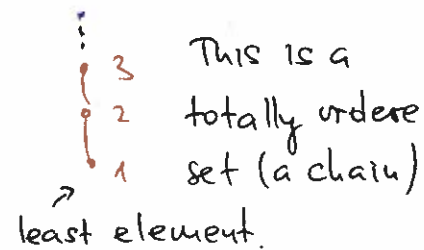 3 This is a
2 totally ordere
1 set (a chain)
least element.